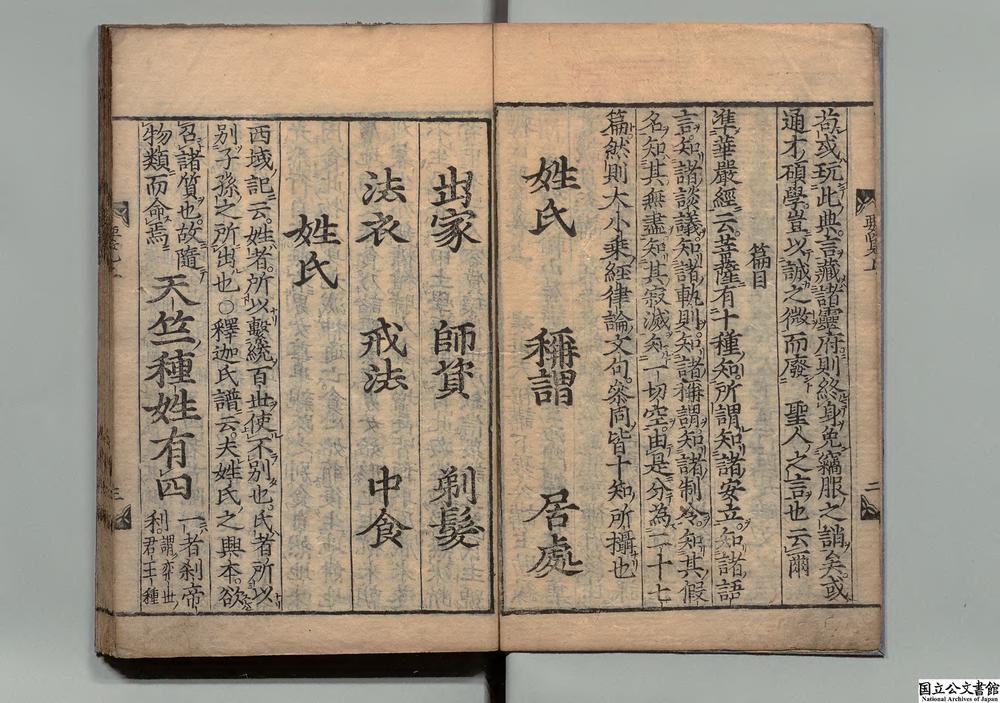 苟或玩此典言藏諸靈府則終身免竊服之誚矣或
通才碩學豈以誠之微而廢 聖人之言也云爾
篇目
準華嚴經云菩薩有十種知所謂知諸安立知諸語
言知諸談議知諸軌則知諸稱謂知諸制令知其假
名知其無盡知其寂滅知一切空由是分為二十七
篇然則大小乘經律論文句叅同皆十知所攝也
姓氏 稱謂 居處
出家 師資 剃髮
法衣 戒法 中食
姓氏
西域記云姓者所以繫統百世使不別也氏者所以
別子孫之所出也○釋迦氏譜云夫姓氏之興本欲
召諸質也故隨
物類而命焉 天竺種姓有四 一者剎帝
利 謂奕世
君王種
二
三
国立公文書館
National Archives of Japan